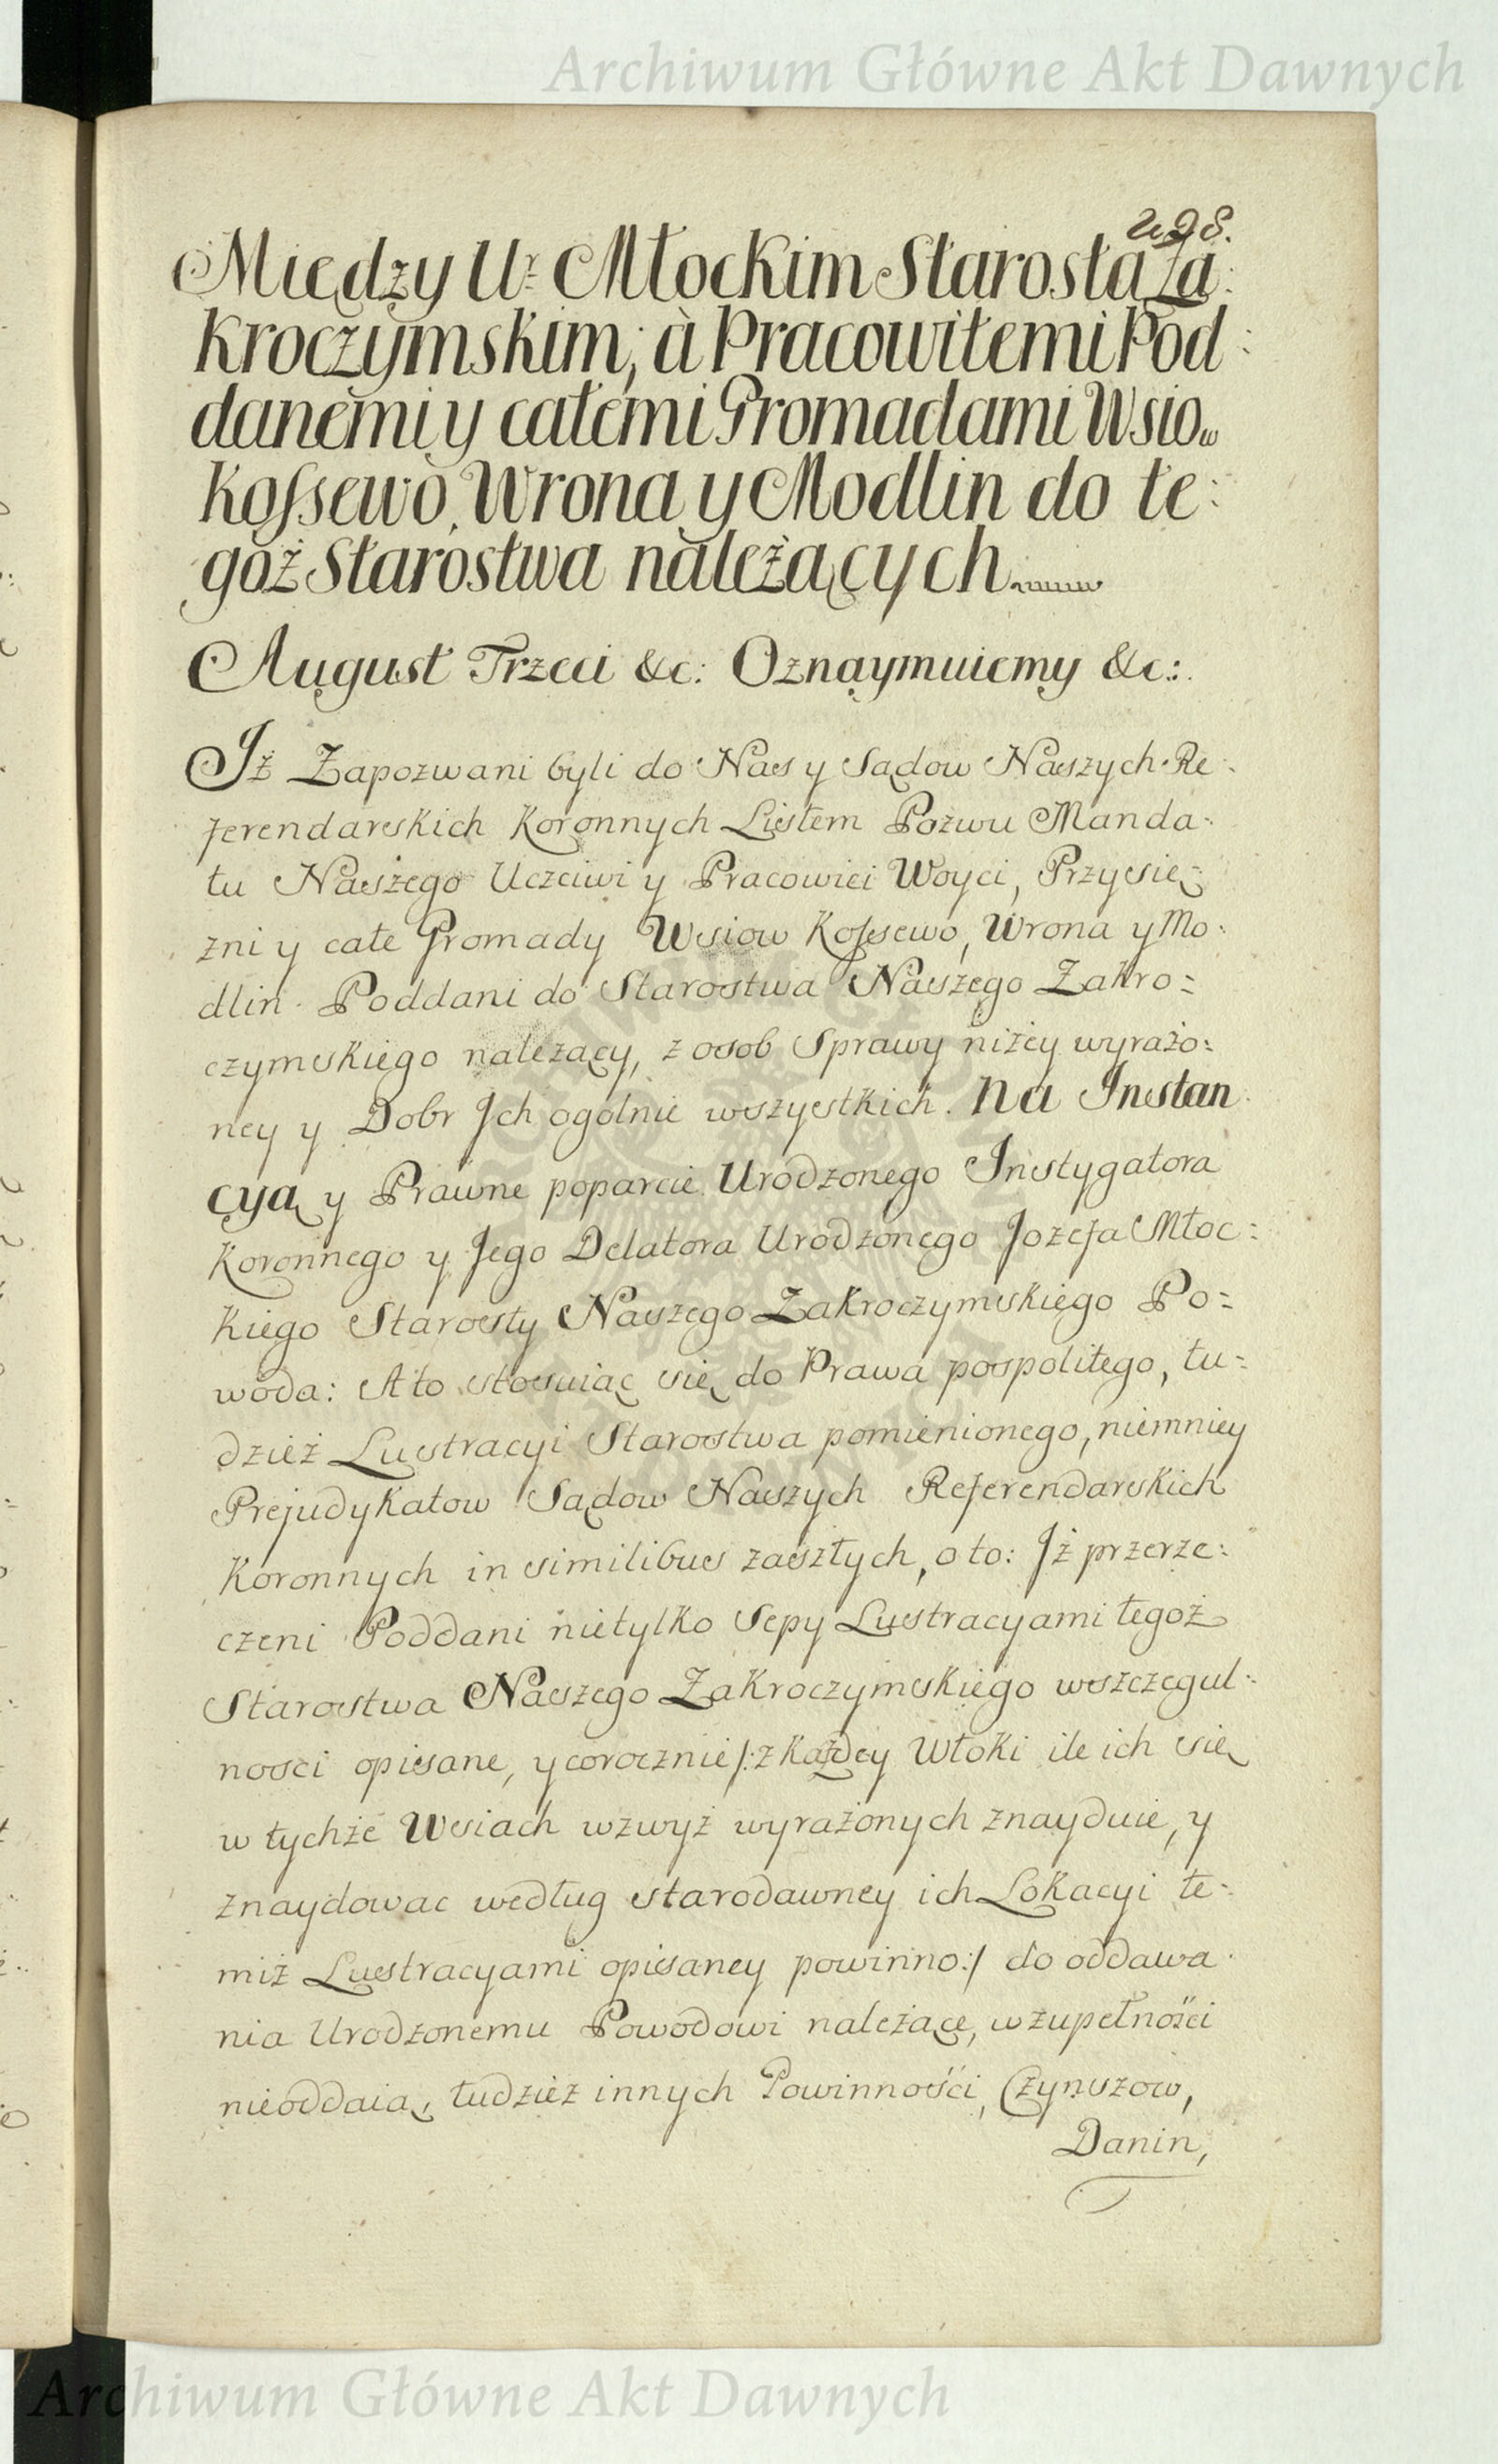 Archiwum Główne Akt Dawnych
Między Ur: Młockim Starostą Za:
Kroczymskim, à Pracowitemi Pod:
danemi y całemi Gromadami Wsiow
Kossewo, Wrona y Modlin do te:
goż Starostwa należących
August Trzeci &c: Oznaymuiemy &c:
Iż Zapozwani byli do Nas y Sądow Naszych Re:
ferendarskich Koronnych Listem Pozwu Manda:
tu Naszego Uczciwi y Pracowici Woyci, Przysię:
żni y całe Gromady Wsiow Kossewo, Wrona y Mo:
dlin Poddani do Starostwa Naszego Zakro=
czymskiego należący, z osob Sprawy niżey wyrażo:
ney y Dobr Ich ogolnie wszystkich. Na Instan
cyą y Prawne poparcie Urodzonego Instygatora
Koronnego y Jego Delatora Urodzonego Jozefa Młoc:
kiego Starosty Naszego Zakroczymskiego Po=
woda: A to stosuiąc się do Prawa pospolitego, tu=
dzież Lustracyi Starostwa pomienionego, niemniey
Prejudykatow Sądow Naszych Referendarskich
Koronnych in similibus zaszłych, o to: Iż przerze:
czeni Poddani nietylko Sepy Lustracyami tegoż
Starostwa Naszego Zakroczymskiego wszczegul:
ności opisane, y corocznie /: z każdey Włoki ile ich się
w tychże Wsiach wzwyż wyrażonych znayduie, y
znaydowac według starodawney ich Lokacyi te:
miż Lustracyami opisaney powinno :/ do oddawa
nia Urodzonemu Powodowi należące, w zupełności
nieoddaią, tudzież innych Powinności, Czynszow,
Danin,
Archiwum Główne Akt Dawnych